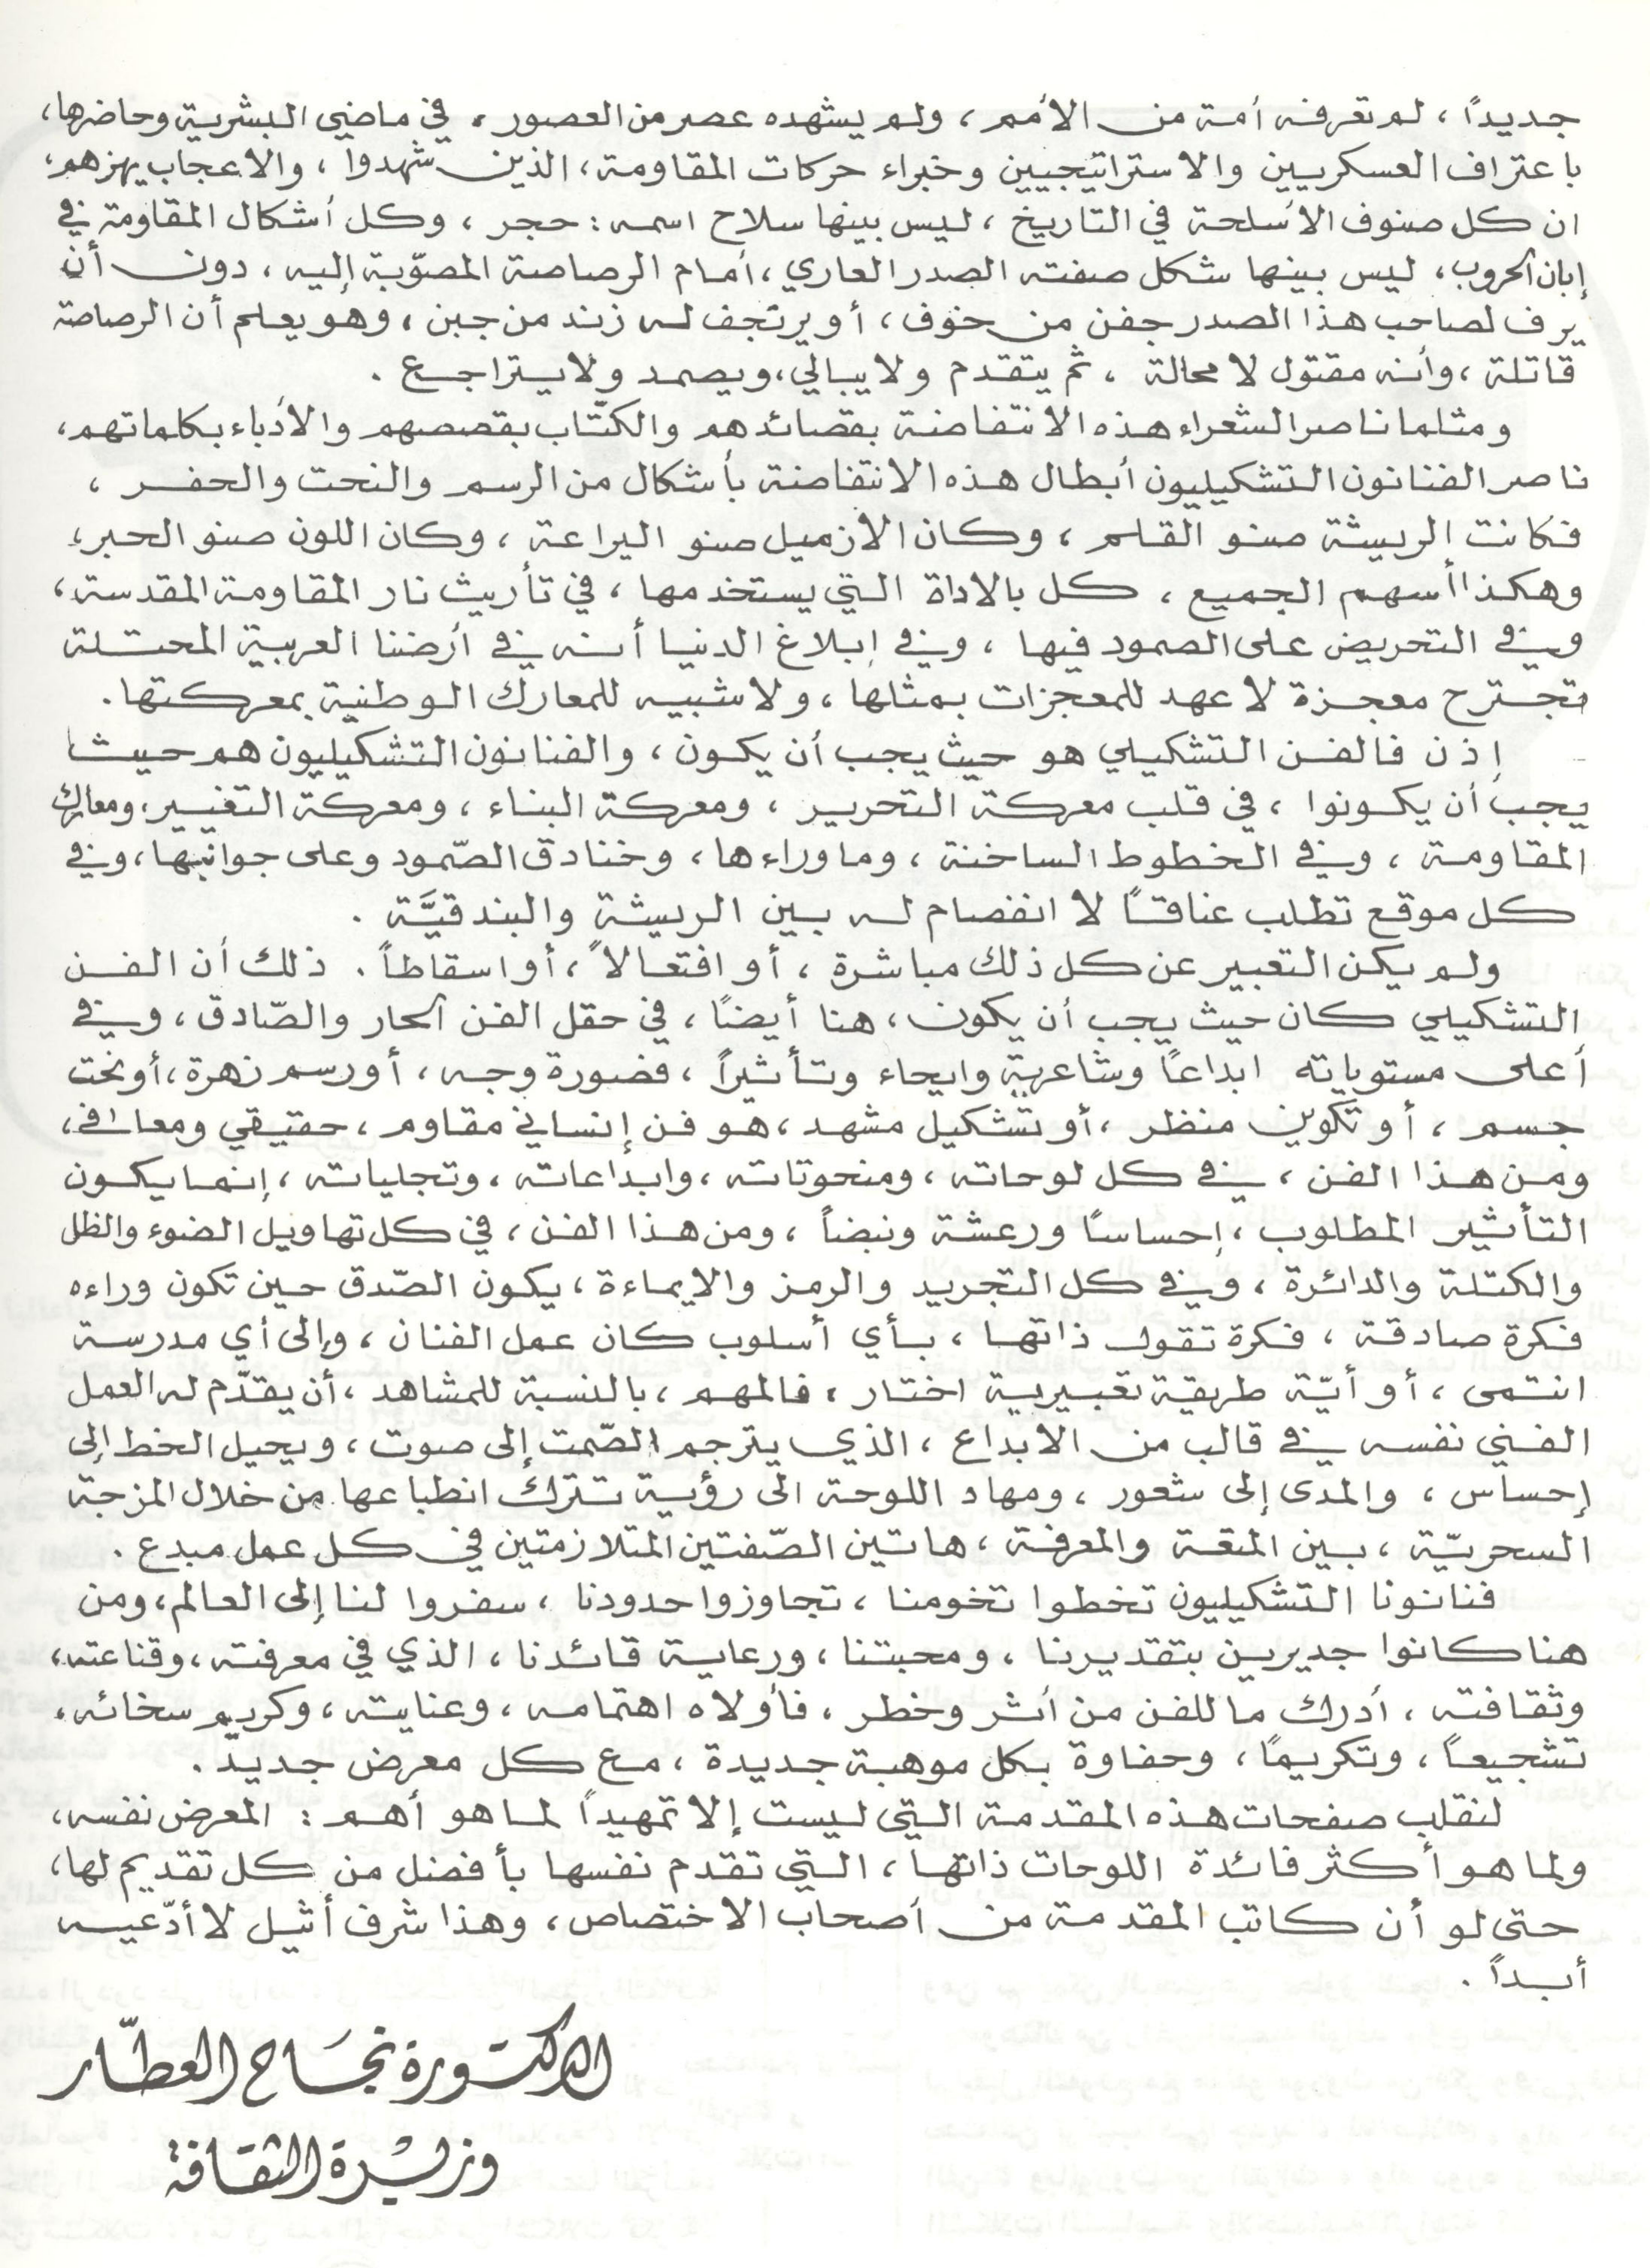 جديداً ، لم تعرفه أمة من الأمم ، ولم يشهده عصر من العصور ، في ماضي البشرية وحاضرها ،
باعتراف العسكريين والاستراتيجيين وخبراء حركات المقاومة ، الذين شهدوا ، والاعجاب يهزهم ،
ان كل صنوف الأسلحة في التاريخ ، ليس بينها سلاح اسمه : حجر ، وكل أشكال المقاومة في
إبان الحروب ، ليس بينها شكل صفته الصدر العاري ، أمام الرصاصة المصوّبة إليه ، دون أن
يرف لصاحب هذا الصدر جفن من خوف ، أو يرتجف له زند من جبن ، وهو يعلم أن الرصاصة
قاتلة ، وأنه مقتول لا محالة ، ثم يتقدم ولا يبالي ، ويصمد ولا يتراجع .
ومثلما ناصر الشعراء هذه الانتفاضة بقصائدهم والكتّاب بقصصهم والأدباء بكلماتهم ،
ناصر الفنانون التشكيليون أبطال هذه الانتفاضة بأشكال من الرسم والنحت والحفر ،
فكانت الريشة صنو القلم ، وكان الازميل صنو اليراعة ، وكان اللون صنو الحبر ،
وهكذا أسهم الجميع ، كل بالاداة التي يستخدمها ، في تأريث نار المقاومة المقدسة ،
وفي التحريض على الصمود فيها ، وفي إبلاغ الدنيا أنه في أرضنا العربية المحتلة
تجترح معجزة لا عهد للمعجزات بمثلها ، ولا شبيه للمعارك الوطنية بمعركتها .
إذن فالفن التشكيلي هو حيث يجب أن يكون ، والفنانون التشكيليون هم حيث
يجب أن يكونوا ، في قلب معركة التحرير ، ومعركة البناء ، ومعركة التغيير ، ومعارك
المقاومة ، وفي الخطوط الساخنة ، وما وراءها ، وخنادق الصّمود وعلى جوانبها ، وفي
كل موقع تطلب عناقاً لا انفصام له بين الريشة والبندقيَّة .
ولم يكن التعبير عن كل ذلك مباشرة ، أو افتعالاً ، أو اسقاطاً . ذلك أن الفن
التشكيلي كان حيث يجب أن يكون ، هنا أيضاً ، في حقل الفن الحار والصّادق ، وفي
أعلى مستوياته ابداعاً وشاعرية وايحاء وتأثيراً ، فصورة وجه ، أو رسم زهرة ، أو نحت
جسم ، أو تكوين منظر ، أو تشكيل مشهد ، هو فن إنساني مقاوم ، حقيقي ومعافى ،
ومن هذا الفن ، في كل لوحاته ، ومنحوتاته ، وابداعاته ، وتجلياته ، إنما يكون
التأثير المطلوب ، إحساساً ورعشة ونبضاً ، ومن هذا الفن ، في كل تهاويل الضوء والظل
والكتلة والدائرة ، وفي كل التجريد والرمز والايماءة ، يكون الصّدق حين تكون وراءه
فكرة صادقة ، فكرة تقول ذاتها ، بأي أسلوب كان عمل الفنان ، وإلى أي مدرسة
انتمى ، أو أيّة طريقة تعبيرية اختار ، فالمهم ، بالنسبة للمشاهد ، أن يقدّم له العمل
الفني نفسه في قالب من الابداع ، الذي يترجم الصّمت إلى صوت ، ويحيل الخط إلى
إحساس ، والمدى إلى شعور ، ومهاد اللوحة الى رؤية تترك انطباعها من خلال المزجة
السحريّة ، بين المتعة والمعرفة ، هاتين الصّفتين المتلازمتين في كل عمل مبدع .
فنانونا التشكيليون تخطوا تخومنا ، تجاوزوا حدودنا ، سفروا لنا إلى العالم ، ومن
هنا كانوا جديرين بتقديرنا ، ومحبتنا ، ورعاية قائدنا ، الذي في معرفته ، وقناعته ،
وثقافته ، أدرك ما للفن من أثر وخطر ، فأولاه اهتمامه ، وعنايته ، وكريم سخائه ،
تشجيعاً ، وتكريماً ، وحفاوة بكل موهبة جديدة ، مع كل معرض جديد .
لنقلب صفحات هذه المقدمة التي ليست إلا تمهيداً لما هو أهم : المعرض نفسه ،
ولما هو أكثر فائدة اللوحات ذاتها ، التي تقدم نفسها بأفضل من كل تقديم لها ،
حتى لو أن كاتب المقدمة من أصحاب الاختصاص ، وهذا شرف أثيل لا أدّعيه
أبداً .
الدكتورة نجاح العطّار
وزيرة الثقافة